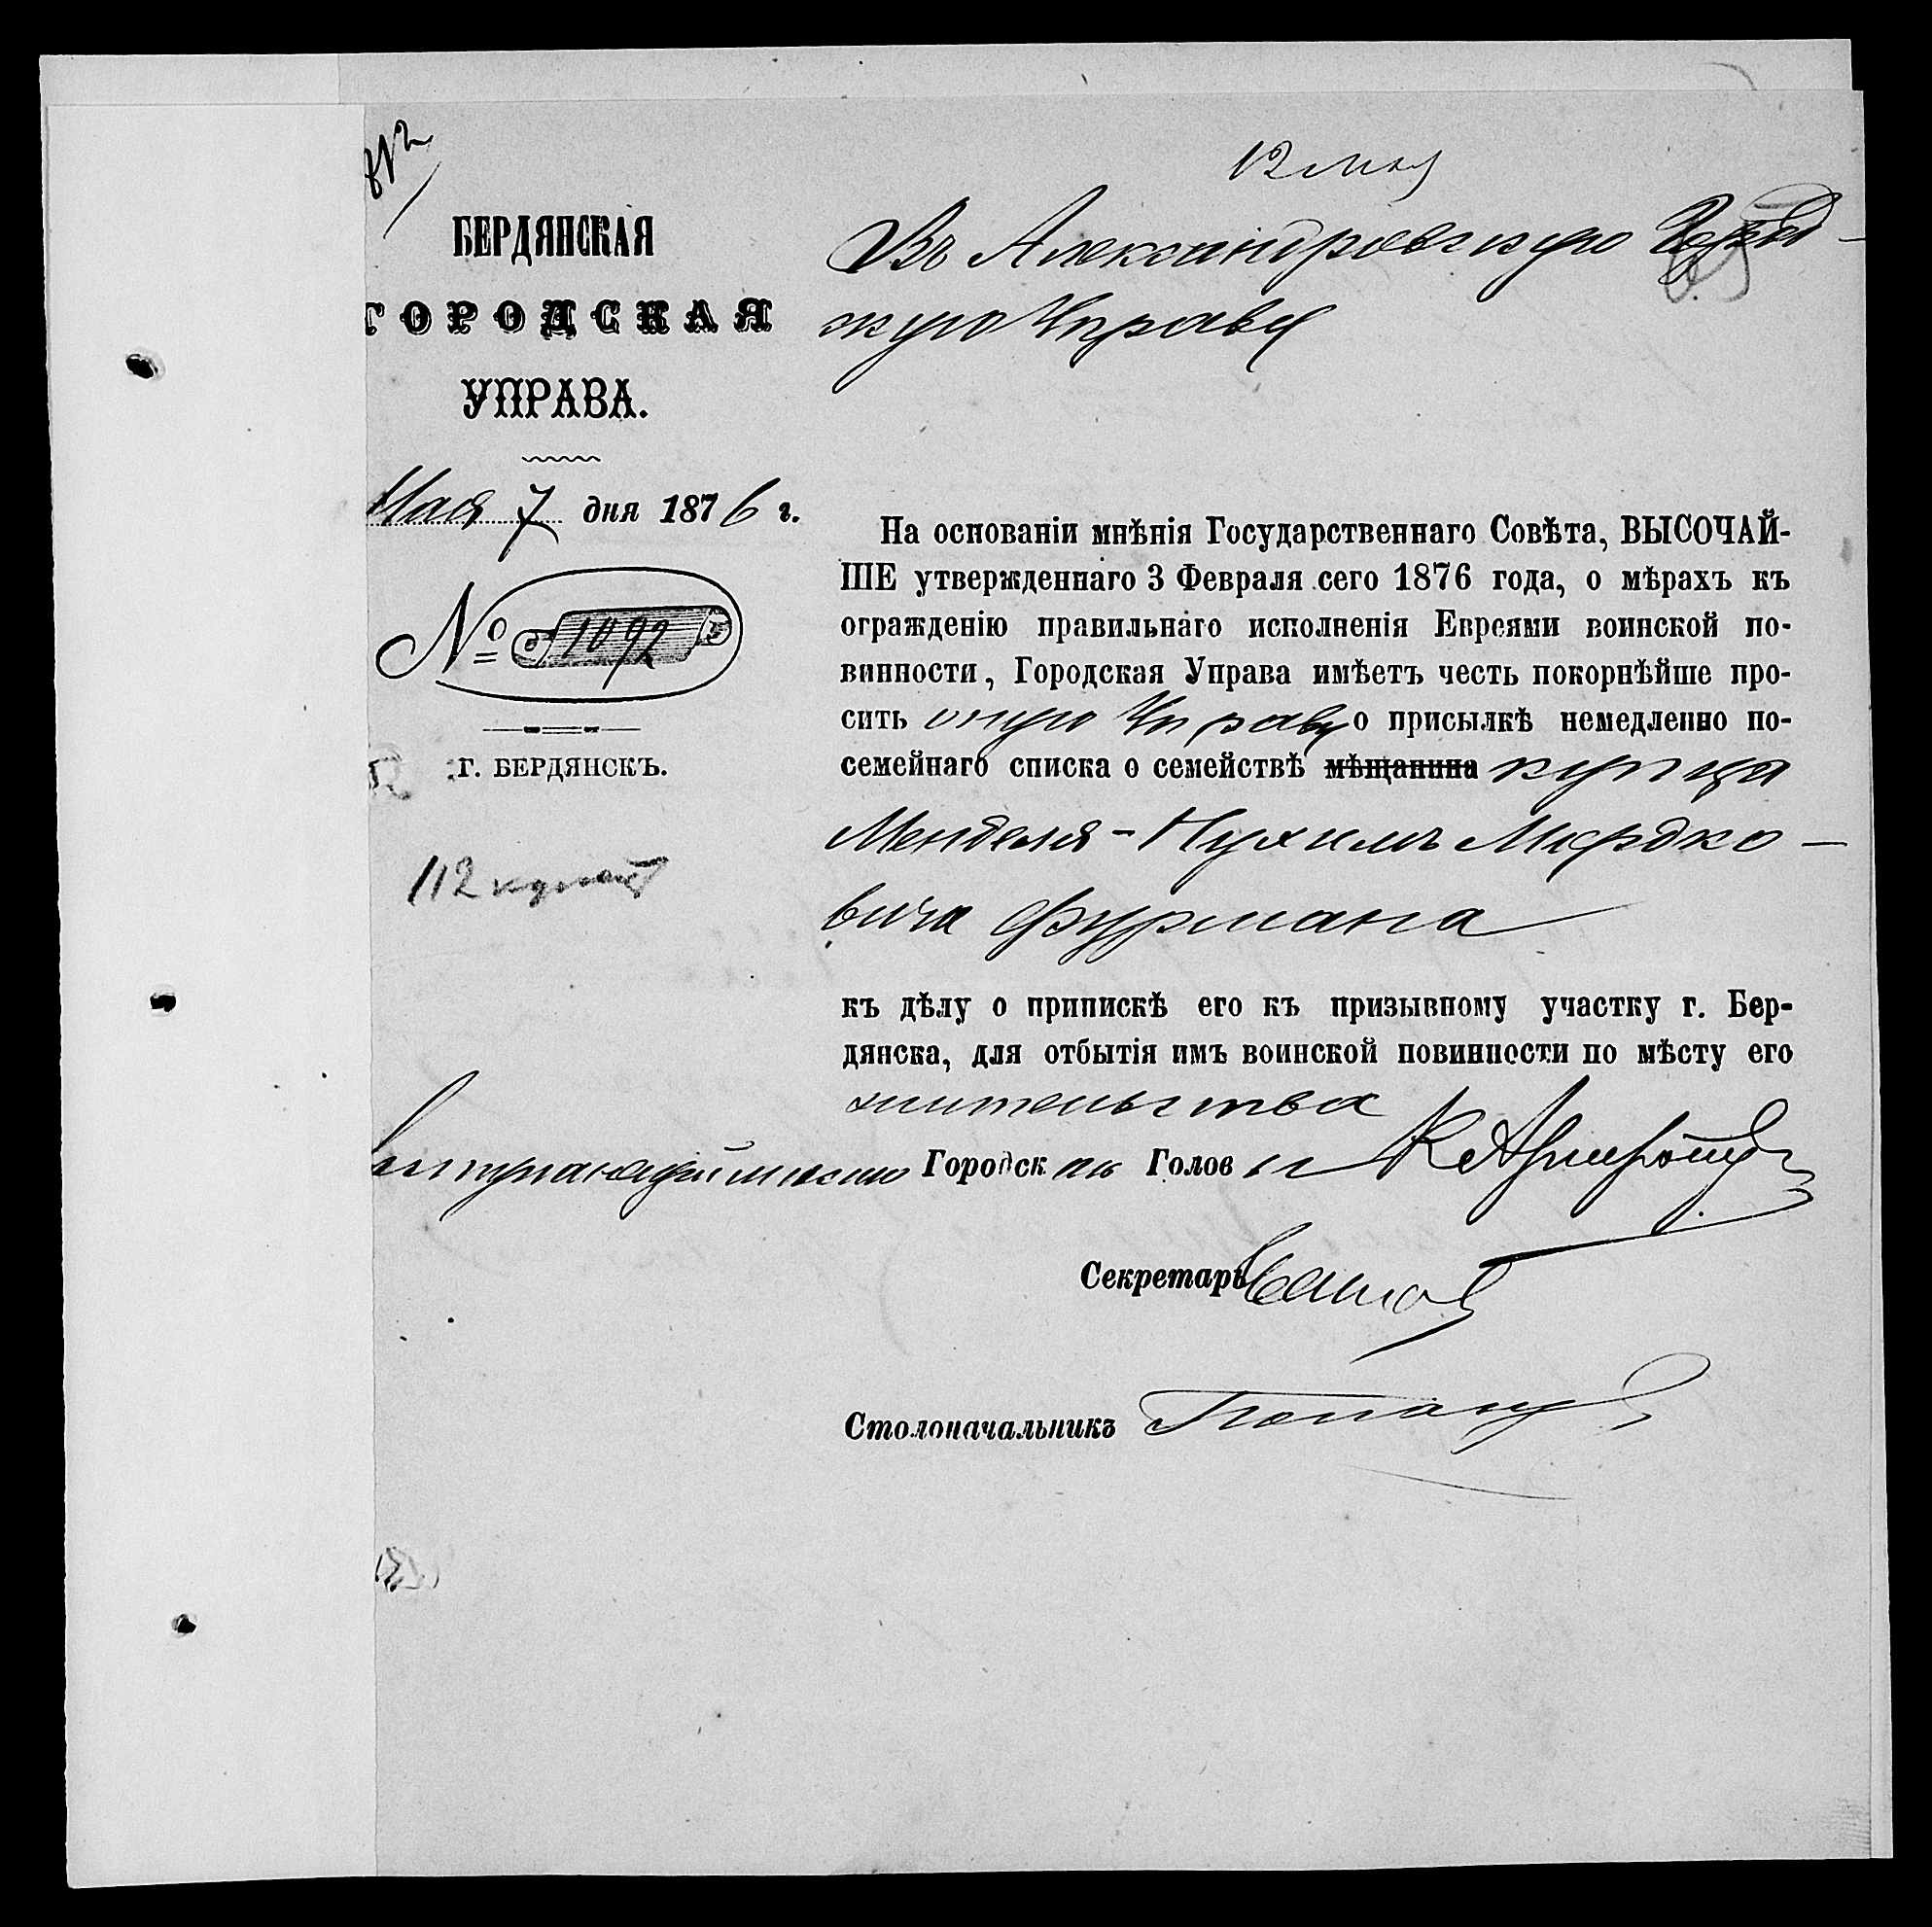 12 мая
БЕРДЯНСКАЯ
ГОРОДСКАЯ
УПРАВА.
Мая 7 дня 1876 г.
№ 1092
Г. БЕРДЯНСКЪ.
112 купец
Въ Александровскую Город-
скую Управу
На основаніи мнѣнія Государственнаго Совѣта, ВЫСОЧАЙ-
ШЕ утвержденнаго 3 Февраля сего 1876 года, о мѣрахъ къ
огражденію правильнаго исполненія Евреями воинской по-
винности, Городская Управа имѣетъ честь покорнѣйше про-
сить оную Управу о присылкѣ немедленно по-
семейнаго списка о семействѣ мѣщанина купца
Менделя-Нухимъ Мордко-
вича Фурмана
къ дѣлу о припискѣ его къ призывному участку г. Бер-
дянска, для отбытія имъ воинской повинности по мѣсту его
жительства
Городск Голов
Секретарь
Столоначальникъ